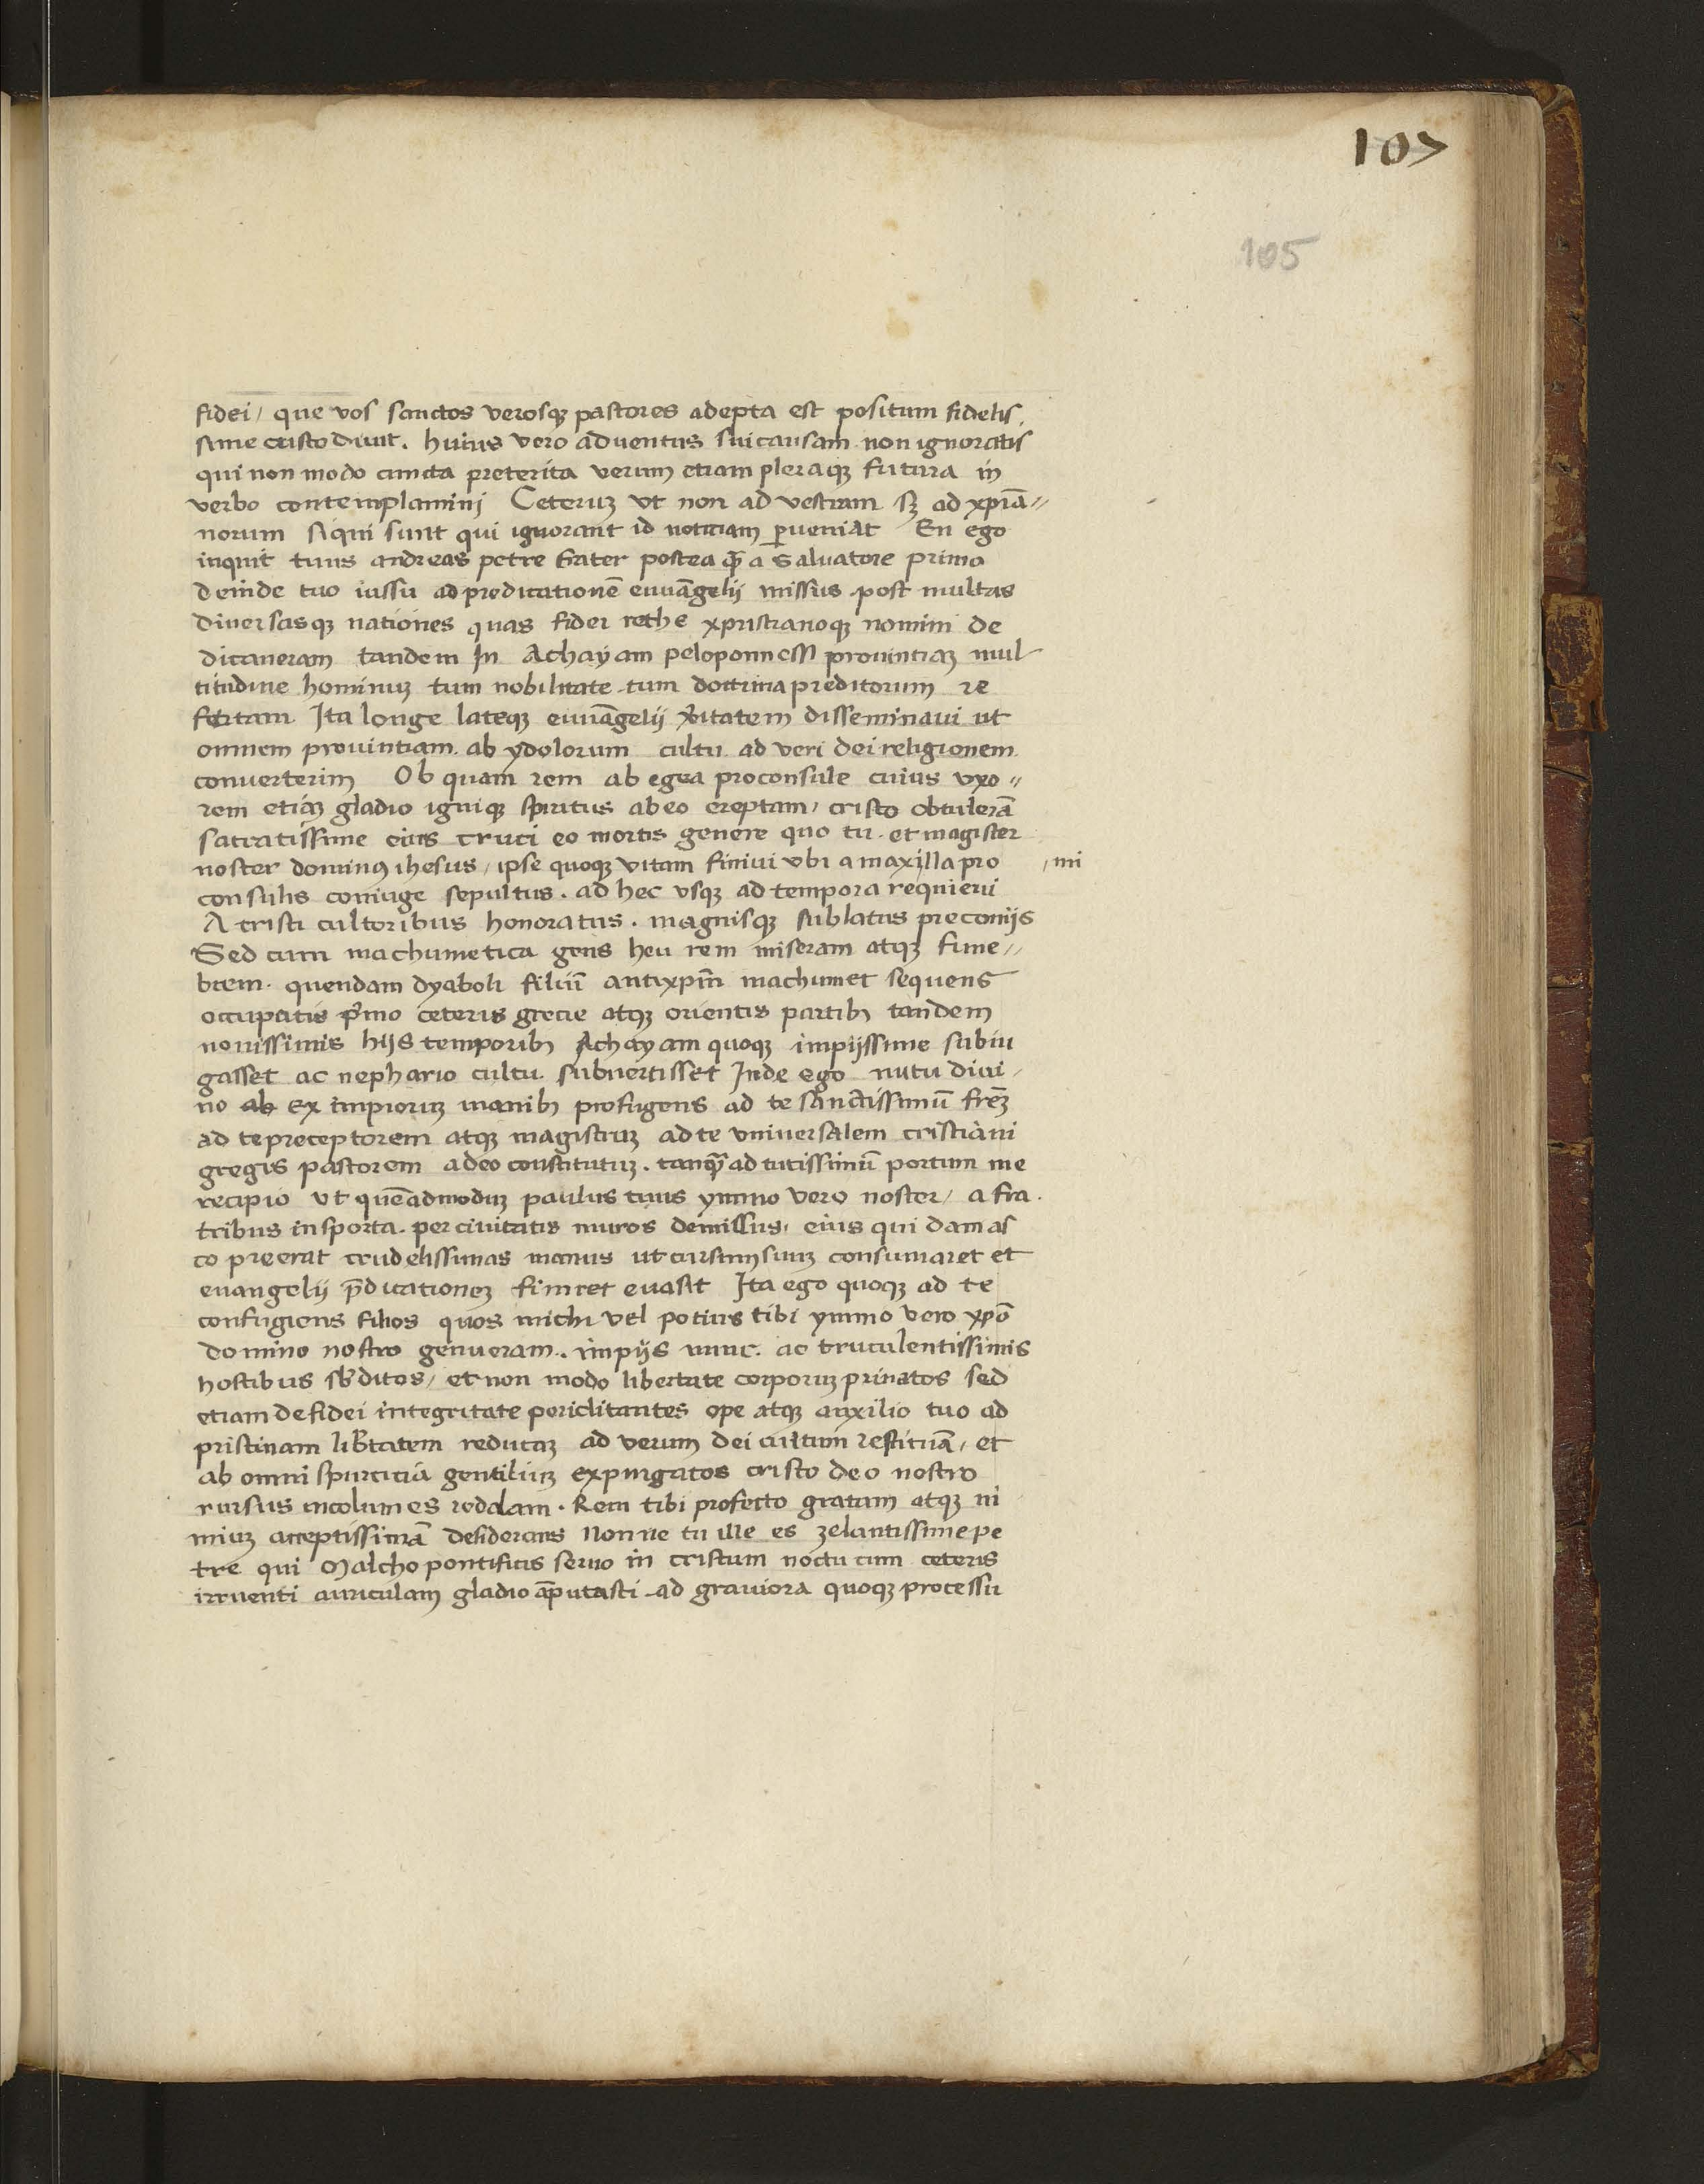 107
105
fidei, que vos sanctos verosqꝫ pastores adepta est positum fidelis
sime custodiuit. huius vero aduentus sui causam non ignoratis
qui non modo cuncta preterita verum etiam pleraqꝫ futura in
verbo contemplamini Ceteruꝫ vt non ad vestram sꝫ ad xp̄iā〃
norum siqui sunt qui ignorant id notitiam ꝑueniat En ego
inquit tuus andreas petre frater postea qͣꝫ a Saluatore primo
deinde tuo iussu ad predicationē euuāgelij missus post multas
diuersasqꝫ nationes quas fidei recthe xpristianoqꝫ nomini de
dicaueram tandem In Achayam peloponnessi prouintiaꝫ mul
titudine hominuꝫ tum nobilitate tum doctrina preditorum re
fertam Ita longe lateqꝫ euuāgelij ỽitatem disseminaui ut
omnem prouintiam ab ydolorum cultu ad veri dei religionem
conuerterim Ob quam rem ab egea proconsule cuius vxo〃
rem etiaꝫ gladio igniqꝫ spiritus ab eo ereptam, cristo obtulerā
sacratissime eius cruci eo mortis genere quo tu et magister
noster dominꝰ ihesus, ipse quoqꝫ vitam finiui vbi a maxilla pro , mi
consulis coniuge sepultus. ad hec vsqꝫ ad tempora requieui
A cristi cultoribus honoratus. magnisqꝫ sublatus preconijs
Sed cum machumetica gens heu rem miseram atqꝫ fune〃
brem. quendam dyaboli filiū antixp̄m machumet sequens
occupatis p̄mo ceteris grecie atqꝫ orientis partibꝫ tandem
nouissimis hijs temporibꝫ Achayam quoqꝫ impijssime subiu
gasset ac nephario cultu subuertisset Inde ego nutu diui,
no ab ex impioruꝫ manibꝫ profugens ad te sanctissimū frēꝫ
ad te preceptorem atqꝫ magistruꝫ ad te vniuersalem cristiani
gregis pastorem a deo constitutuꝫ. tanqͣꝫ ad tutissimū portum me
recipio vt quēadmoduꝫ paulus tuus ymmo vero noster, a fra.
tribus in sporta. per ciuitatis muros demissus, eius qui damas
co preerat crudelissimas manus ut cursum suuꝫ consumaret et
euangelij p̄dicationeꝫ finiret euasit Ita ego quoqꝫ ad te
confugiens filios quos michi vel potius tibi ymmo vero xp̄o
domino nostro genueram. impijs nunc. ac truculentissimis
hostibus sb̄ditos, et non modo libertate corporuꝫ priuatos sed
etiam de fidei integritate periclitantes ope atqꝫ auxilio tuo ad
pristinam lib̄tatem reducaꝫ ad verum dei cultum restituā, et
ab omni spurcitia gentiliuꝫ expurgatos cristo deo nostro
rursus incolumes reddam. Rem tibi profecto gratam atqꝫ ni
miuꝫ acceptissimā desiderans Nonne tu ille es zelantissime pe
tre qui Malcho pontificis seruo in cristum noctu cum ceteris
irruenti auriculam gladio āputasti ad grauiora quoqꝫ processu